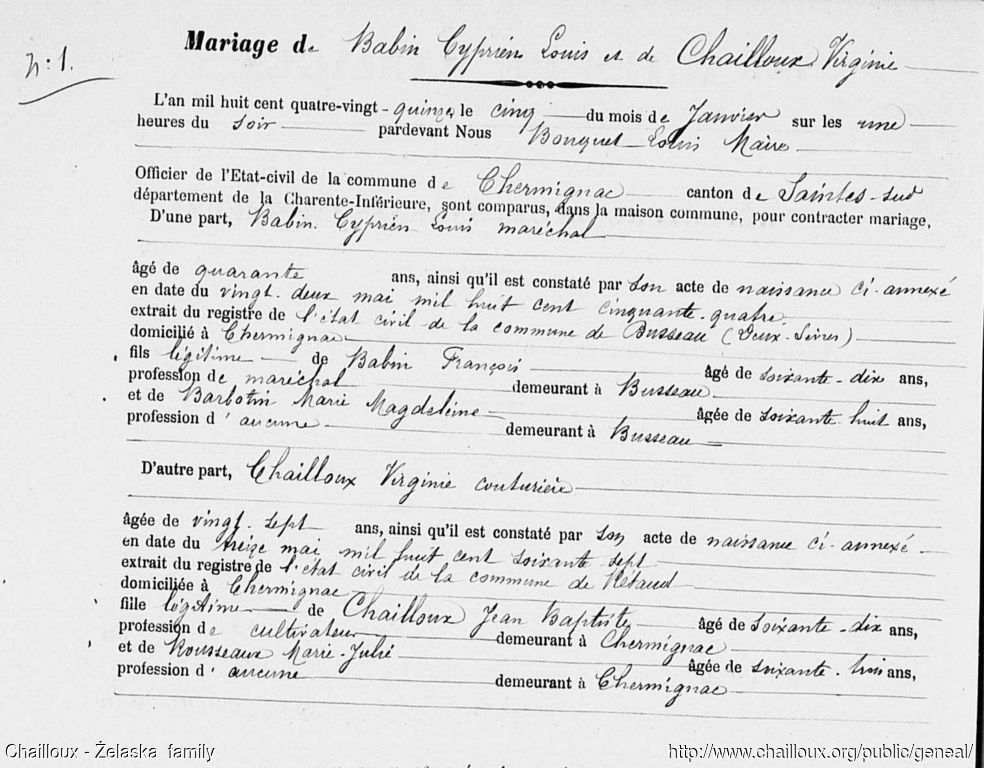 Mariage de Babin Cyprien Louis et de Chailloux Virginie
N: 1.
L'an mil huit cent quatre-vingt-quinze, le cinq du mois de Janvier sur les une
heures du soir pardevant Nous Bouquet Louis Maire
Officier de l'Etat-civil de la commune de Chermignac canton de Saintes-sud
département de la Charente-Inférieure, sont comparus, dans la maison commune, pour contracter mariage,
D'une part, Babin Cyprien Louis maréchal
âgé de quarante ans, ainsi qu'il est constaté par son acte de naissance ci-annexé
en date du vingt-deux mai mil huit cent cinquante-quatre
extrait du registre de l'état civil de la commune de Busseau (Deux-Sèvres)
domicilié à Chermignac
fils légitime de Babin François âgé de soixante-dix ans,
profession de maréchal demeurant à Busseau
et de Barbotin Marie Magdeleine âgée de soixante huit ans,
profession d'aucune demeurant à Busseau
D'autre part, Chailloux Virginie couturière
âgée de vingt-sept ans, ainsi qu'il est constaté par son acte de naissance ci-annexé
en date du treize mai mil huit cent soixante sept
extrait du registre de l'état civil de la commune de Rétaud
domiciliée à Chermignac
fille légitime de Chailloux Jean Baptiste âgé de soixante-dix ans,
profession de cultivateur demeurant à Chermignac
et de Rousseaux Marie-Julie âgée de soixante-trois ans,
profession d'aucune demeurant à Chermignac
Chailloux - Żelaska family
http://www.chailloux.org/public/geneal/